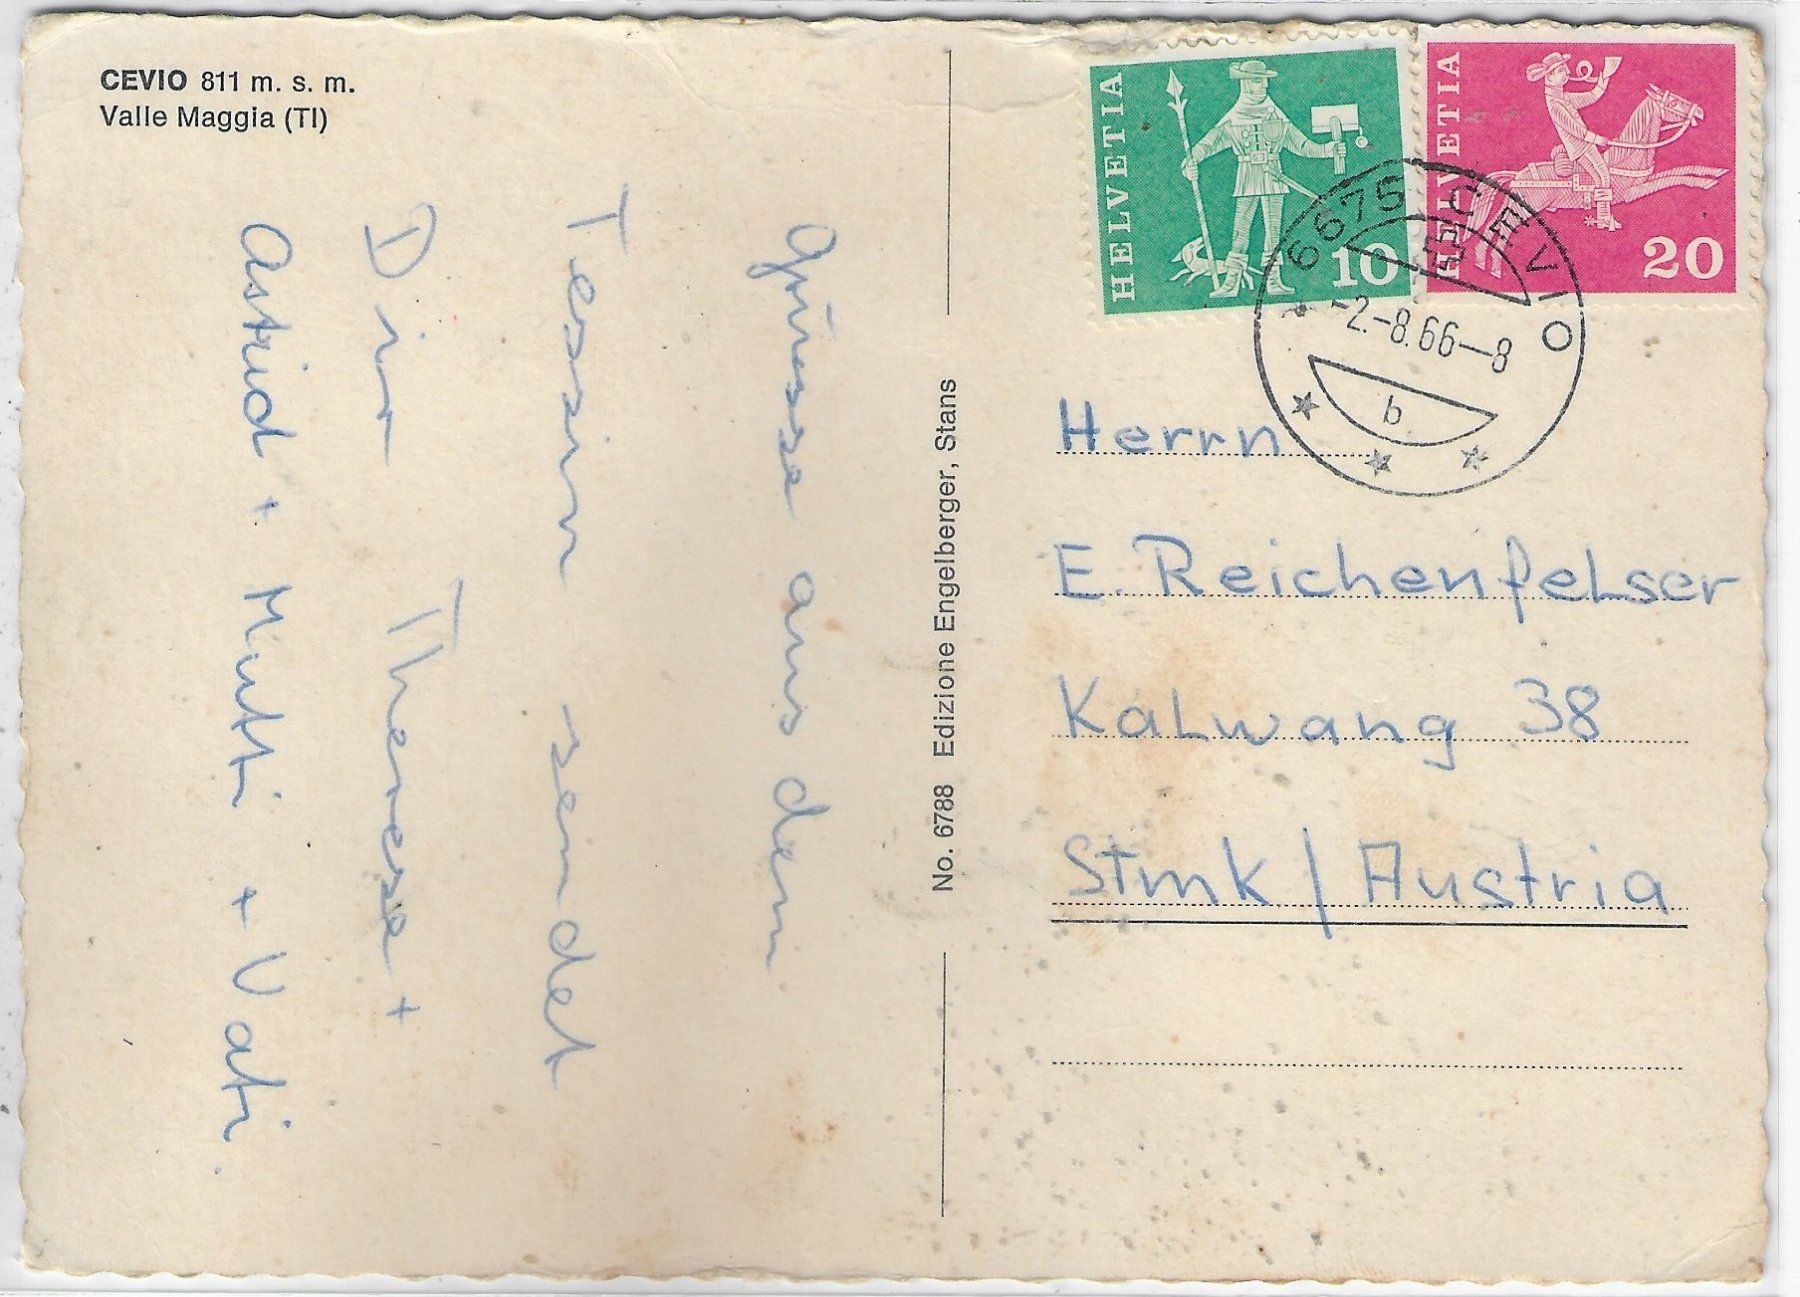 CEVIO 811 m. s. m.
Valle Maggia (TI)
Grüsse aus dem
Tessin sendet
Dir Therese +
Astrid + Mutti + Vati.
No. 6788 Edizione Engelberger, Stans
HELVETIA
10
HELVETIA
20
6675 CEVIO
-2.-8.66-8
b
Herrn
E. Reichenfelser
Kalwang 38
Stmk / Austria